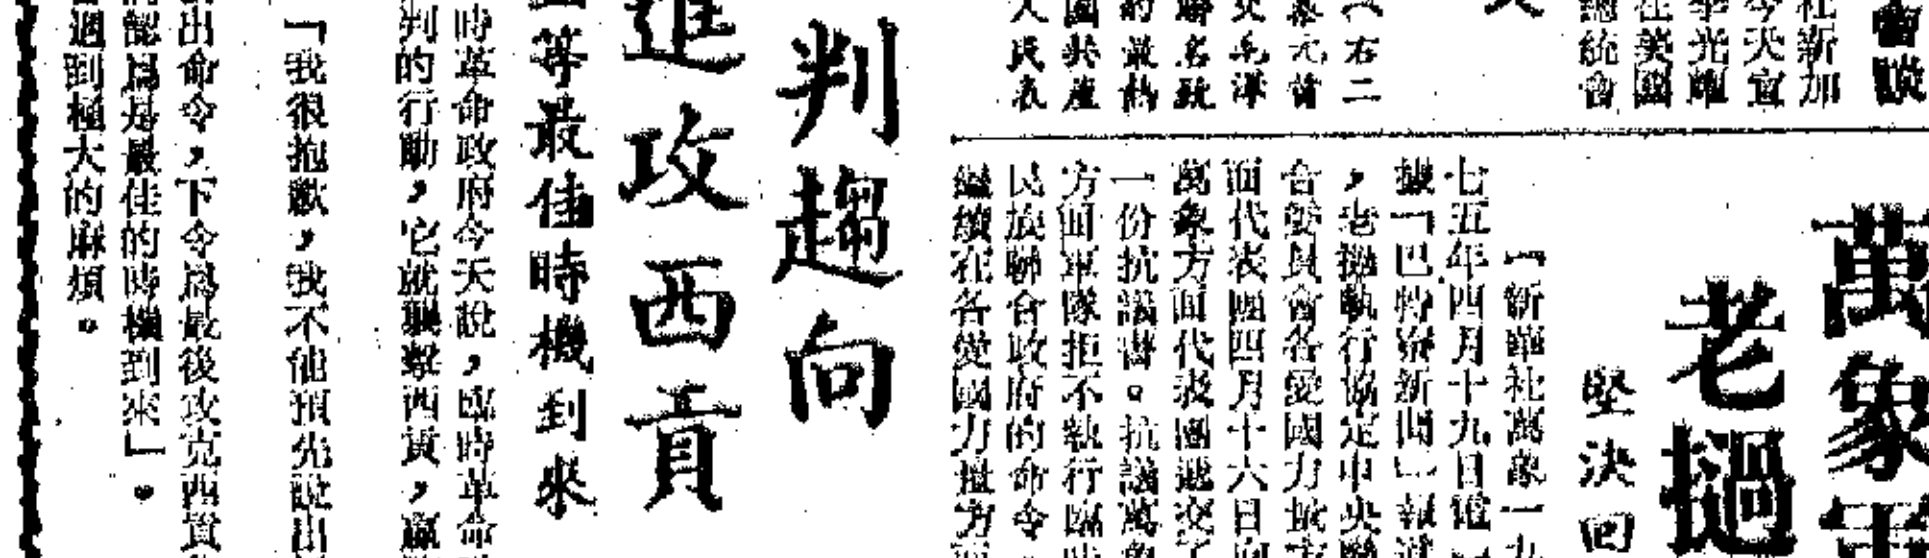 會談
社新加
今天宣
李光耀
在美國
總統會
（右二
泰元首
文毛澤
聯名致
的最熱
國共產
人民表
萬象
老撾
堅決回
【新華社萬象一九
七五年四月十九日電】
據「巴特寮新聞」報道
，老撾執行協定中央聯
合委員會各愛國力量方
面代表團四月十六日向
萬象方面代表團遞交了
一份抗議書。抗議萬象
方面軍隊拒不執行臨時
民族聯合政府的命令，
繼續在各愛國力量方面
判趨向
進攻西貢
等最佳時機到來
時革命政府今天說，臨時革命
判的行動，它就襲擊西貢，贏
「我很抱歉，我不能預先說出
出命令，下令爲最後攻克西貢
認爲是最佳的時機到來」。
遇到極大的麻煩。